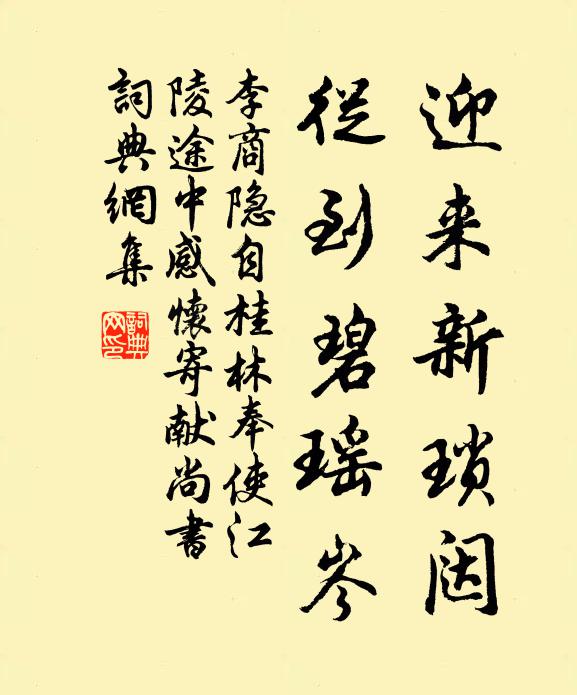 迎来新瑣闼
從到碧瑶岑
李商隐自桂林奉使江
陵途中感懷寄献尚書
詞典網集
詞典网印